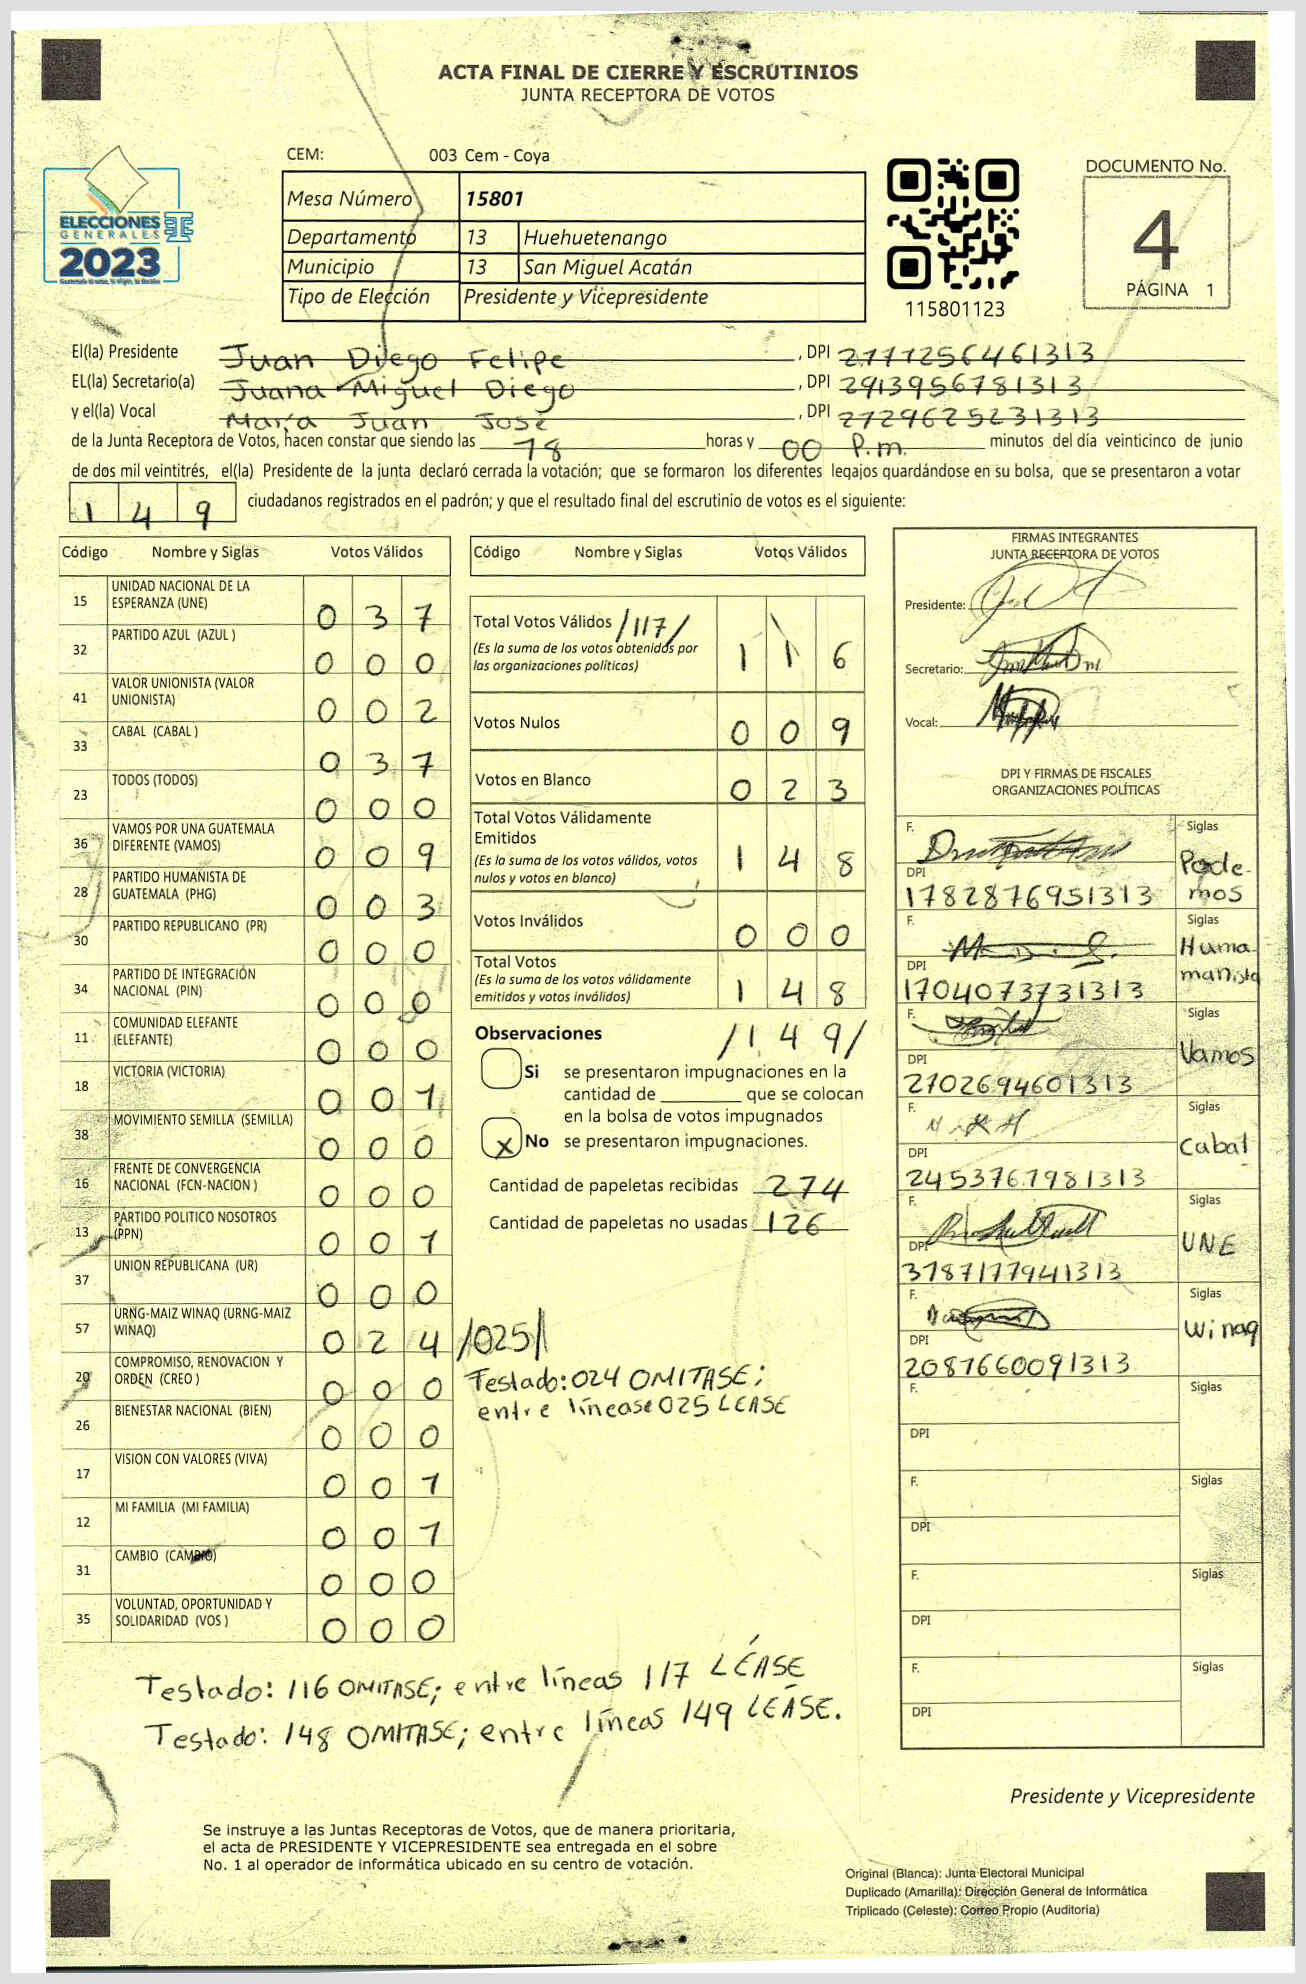 ACTA FINAL DE CIERRE Y ESCRUTINIOS
JUNTA RECEPTORA DE VOTOS
CEM: 003 Cem - Coya
ELECCIONES
GENERALES
2023
Mesa Número 15801
Departamento 13 Huehuetenango
Municipio 13 San Miguel Acatán
Tipo de Elección Presidente y Vicepresidente
115801123
DOCUMENTO No.
4
PÁGINA 1
El(la) Presidente Juan Diego Felipe, DPI 2777256461313
EL(la) Secretario(a) Juana Miguel Diego, DPI 2913956781313
y el(la) Vocal María Juan José, DPI 2729625231313
de la Junta Receptora de Votos, hacen constar que siendo las 18 horas y 00 P.m. minutos del día veinticinco de junio
de dos mil veintitrés, el(la) Presidente de la junta declaró cerrada la votación; que se formaron los diferentes legajos guardándose en su bolsa, que se presentaron a votar
149 ciudadanos registrados en el padrón; y que el resultado final del escrutinio de votos es el siguiente:
Código Nombre y Siglas Votos Válidos
15 UNIDAD NACIONAL DE LA ESPERANZA (UNE) 037
32 PARTIDO AZUL (AZUL ) 000
41 VALOR UNIONISTA (VALOR UNIONISTA) 002
33 CABAL (CABAL ) 037
23 TODOS (TODOS) 000
36 VAMOS POR UNA GUATEMALA DIFERENTE (VAMOS) 009
28 PARTIDO HUMANISTA DE GUATEMALA (PHG) 003
30 PARTIDO REPUBLICANO (PR) 000
34 PARTIDO DE INTEGRACIÓN NACIONAL (PIN) 000
11 COMUNIDAD ELEFANTE (ELEFANTE) 000
18 VICTORIA (VICTORIA) 001
38 MOVIMIENTO SEMILLA (SEMILLA) 000
16 FRENTE DE CONVERGENCIA NACIONAL (FCN-NACION ) 000
13 PARTIDO POLITICO NOSOTROS (PPN) 001
37 UNION REPUBLICANA (UR) 000
57 URNG-MAIZ WINAQ (URNG-MAIZ WINAQ) 024 /025/
20 COMPROMISO, RENOVACION Y ORDEN (CREO ) 000
26 BIENESTAR NACIONAL (BIEN) 000
17 VISION CON VALORES (VIVA) 001
12 MI FAMILIA (MI FAMILIA) 001
31 CAMBIO (CAMBIO) 000
35 VOLUNTAD, OPORTUNIDAD Y SOLIDARIDAD (VOS ) 000
Código Nombre y Siglas Votos Válidos
Total Votos Válidos /117/
(Es la suma de los votos obtenidos por
las organizaciones políticas) 116
Votos Nulos 009
Votos en Blanco 023
Total Votos Válidamente
Emitidos
(Es la suma de los votos válidos, votos
nulos y votos en blanco) 148
Votos Inválidos 000
Total Votos
(Es la suma de los votos válidamente
emitidos y votos inválidos) 148
Observaciones /149/
Si se presentaron impugnaciones en la
cantidad de ________ que se colocan
en la bolsa de votos impugnados
x No se presentaron impugnaciones.
Cantidad de papeletas recibidas 274
Cantidad de papeletas no usadas 126
Testado: 024 OMITASE;
entre líneas 025 LEASE
FIRMAS INTEGRANTES
JUNTA RECEPTORA DE VOTOS
Presidente:
Secretario:
Vocal:
DPI Y FIRMAS DE FISCALES
ORGANIZACIONES POLÍTICAS
F. Siglas
Pode-
mos
DPI 1782876951313
F. Siglas
Huma
manista
DPI 1704073731313
F. Siglas
Vamos
DPI 2702694601313
F. Siglas
Cabal
DPI 2453767981313
F. Siglas
UNE
DPI 3787177941313
F. Siglas
Winaq
DPI 2087660091313
F. Siglas
DPI
F. Siglas
DPI
F. Siglas
DPI
F. Siglas
DPI
Testado: 116 OMITASE; entre líneas 117 LÉASE
Testado: 148 OMITASE; entre líneas 149 LEÁSE.
Presidente y Vicepresidente
Se instruye a las Juntas Receptoras de Votos, que de manera prioritaria,
el acta de PRESIDENTE Y VICEPRESIDENTE sea entregada en el sobre
No. 1 al operador de informática ubicado en su centro de votación.
Original (Blanca): Junta Electoral Municipal
Duplicado (Amarilla): Dirección General de Informática
Triplicado (Celeste): Correo Propio (Auditoría)